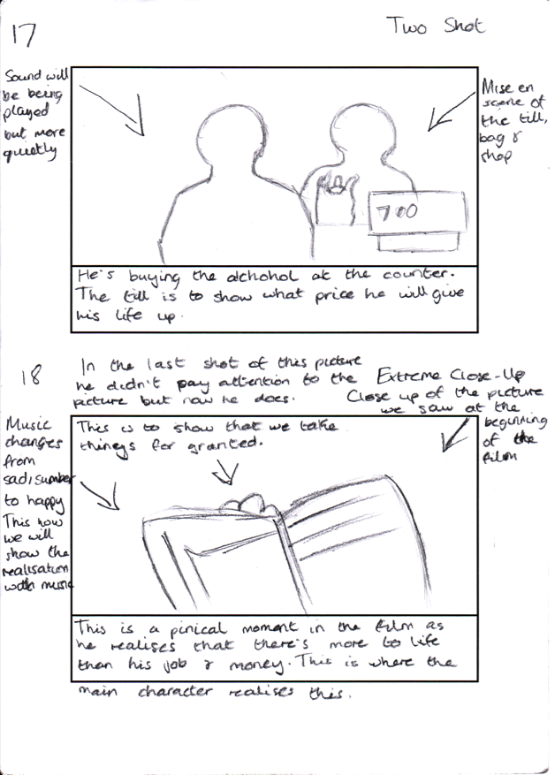 17
Two Shot
Sound will
be being
played
but more
quietly
Mise en
scene of
the till,
bag &
shop
7.00
He's buying the alchohol at the counter.
The till is to show what price he will give
his life up.
18
In the last shot of this picture
he didn't pay attention to the
picture but now he does.
Extreme Close-Up
Close up of the picture
we saw at the
beginning
of the
film
Music
changes
from
sad, sumber
to happy
This how
we will
show the
realisation
with music
This is to show that we take
things for granted.
This is a pinical moment in the film as
he realises that there's more to life
than his job & money. This is where the
main character realises this.